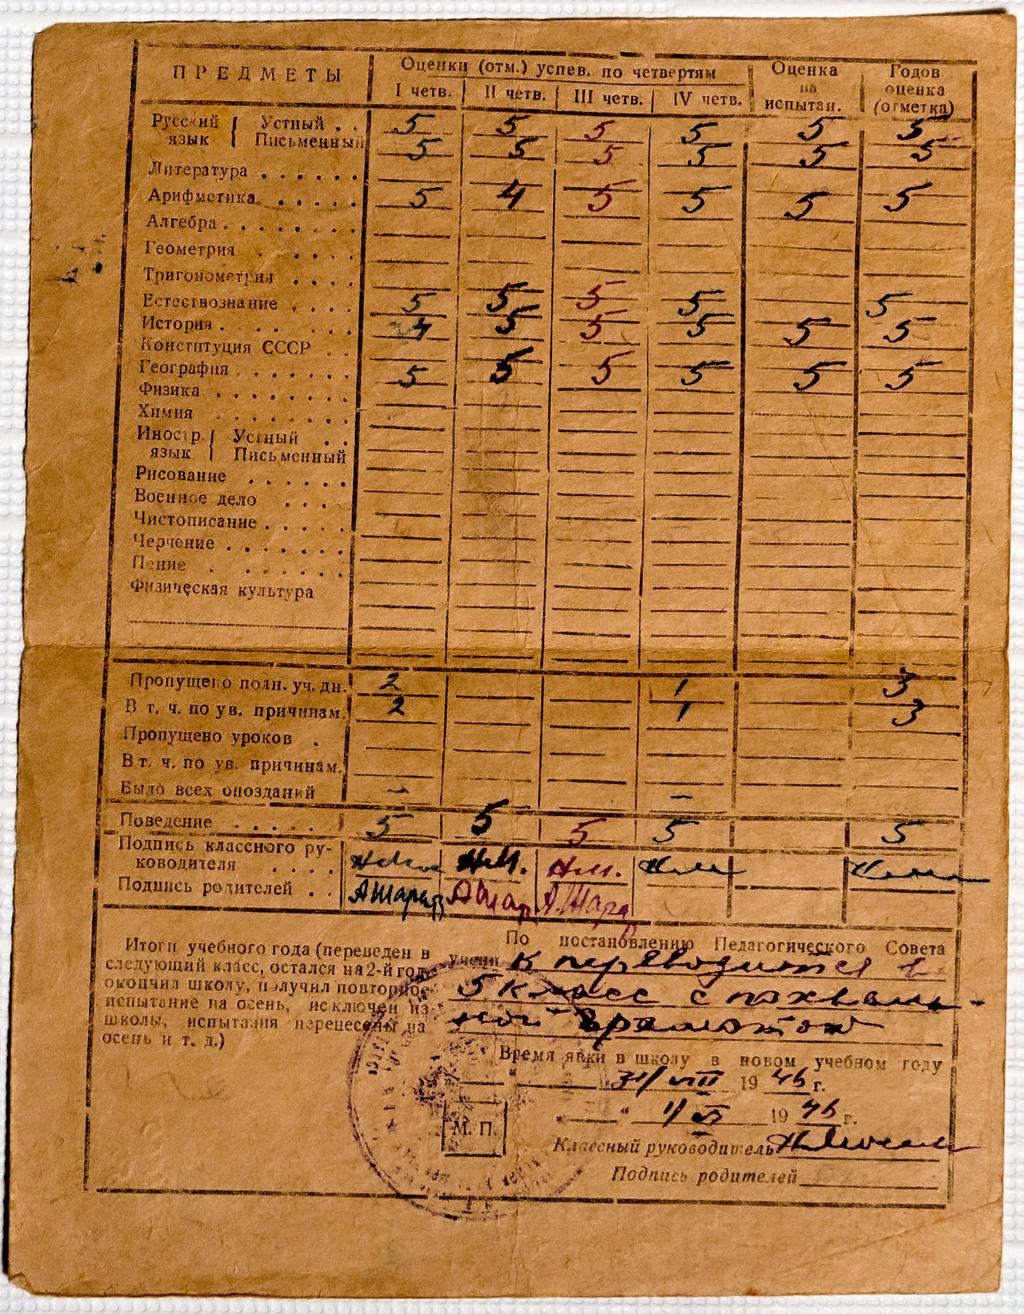 ПРЕДМЕТЫ Оценки (отм.) успев. по четвертям Оценка на испытан. Годов оценка (отметка)
I четв. II четв. III четв. IV четв.
Русский язык Устный . . 5 5 5 5 5 5
Письменный 5 5 5 5 5 5
Литература . . . . . .
Арифметика . . . . . 5 4 5 5 5 5
Алгебра . . . . . . .
Геометрия . . . . .
Тригонометрия . . . .
Естествознание . . . . 5 5 5 5 5
История . . . . . . . 4 5 5 5 5 5
Конституция СССР . .
География . . . . . . 5 5 5 5 5 5
Физика . . . . . . .
Химия . . . . . . .
Иностр. язык Устный . .
Письменный
Рисование . . . . . .
Военное дело . . . .
Чистописание . . . .
Черчение . . . . . .
Пение . . . . . .
Физическая культура
Пропущено полн. уч. дн. 2 1 3
В т. ч. по ув. причинам. 2 1 3
Пропущено уроков .
В т. ч. по ув. причинам.
Было всех опозданий – –
Поведение . . . . . 5 5 5 5 5
Подпись классного ру-
ководителя . . . . Н.М. Н.м.
Подпись родителей . .
Итоги учебного года (переведен в
следующий класс, остался на 2-й год,
окончил школу, получил повторное
испытание на осень, исключен из
школы, испытания перенесены на
осень и т. д.)
По постановлению Педагогического Совета
учени к переводится в
5 класс с похваль-
ной грамотой
Время явки в школу в новом учебном году
31/VIII 1946 г.
" 1946 г.
М. П.
Классный руководитель
Подпись родителей